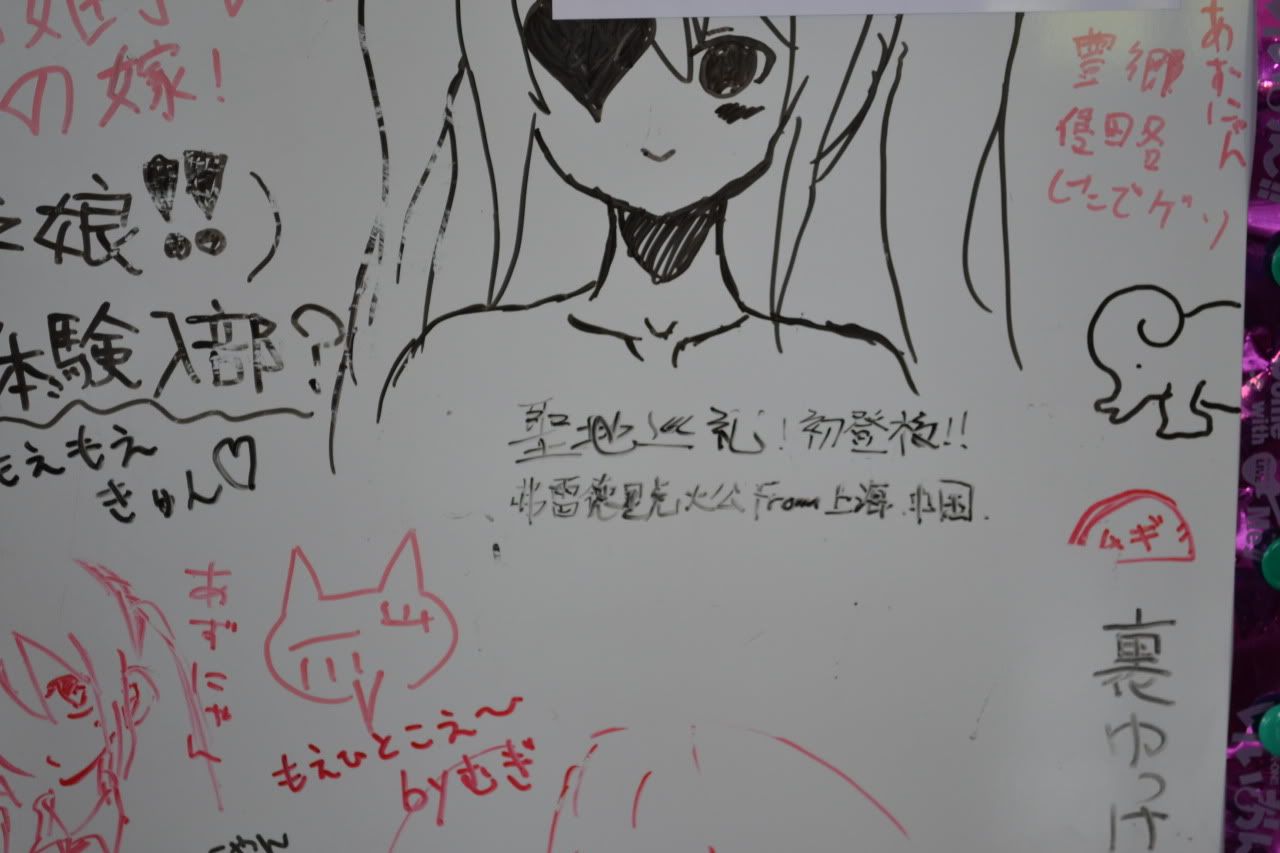 の嫁!
娘!!)
体験入部?
もえもえ
きゅん♡
あずにゃん
豊郷
侵略
したでゲソ
聖地巡礼!初登板!!
弗雷德里克大公 From 上海 中国.
ムギ
裏ゆっけ
あずにゃん
もえひとこえ~
byむぎ
ゃん
with
Me!